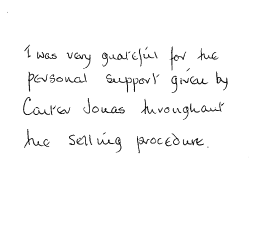 I was very grateful for the
personal support given by
Carter Jonas throughout
the selling procedure.